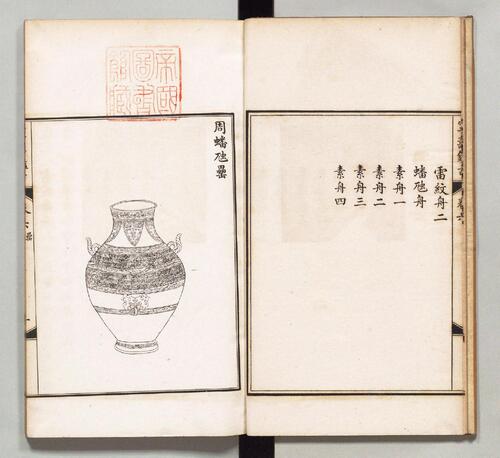 雷紋舟二
蟠虺舟
素舟一
素舟二
素舟三
素舟四
周蟠虺罍
帝國
圖書
館藏